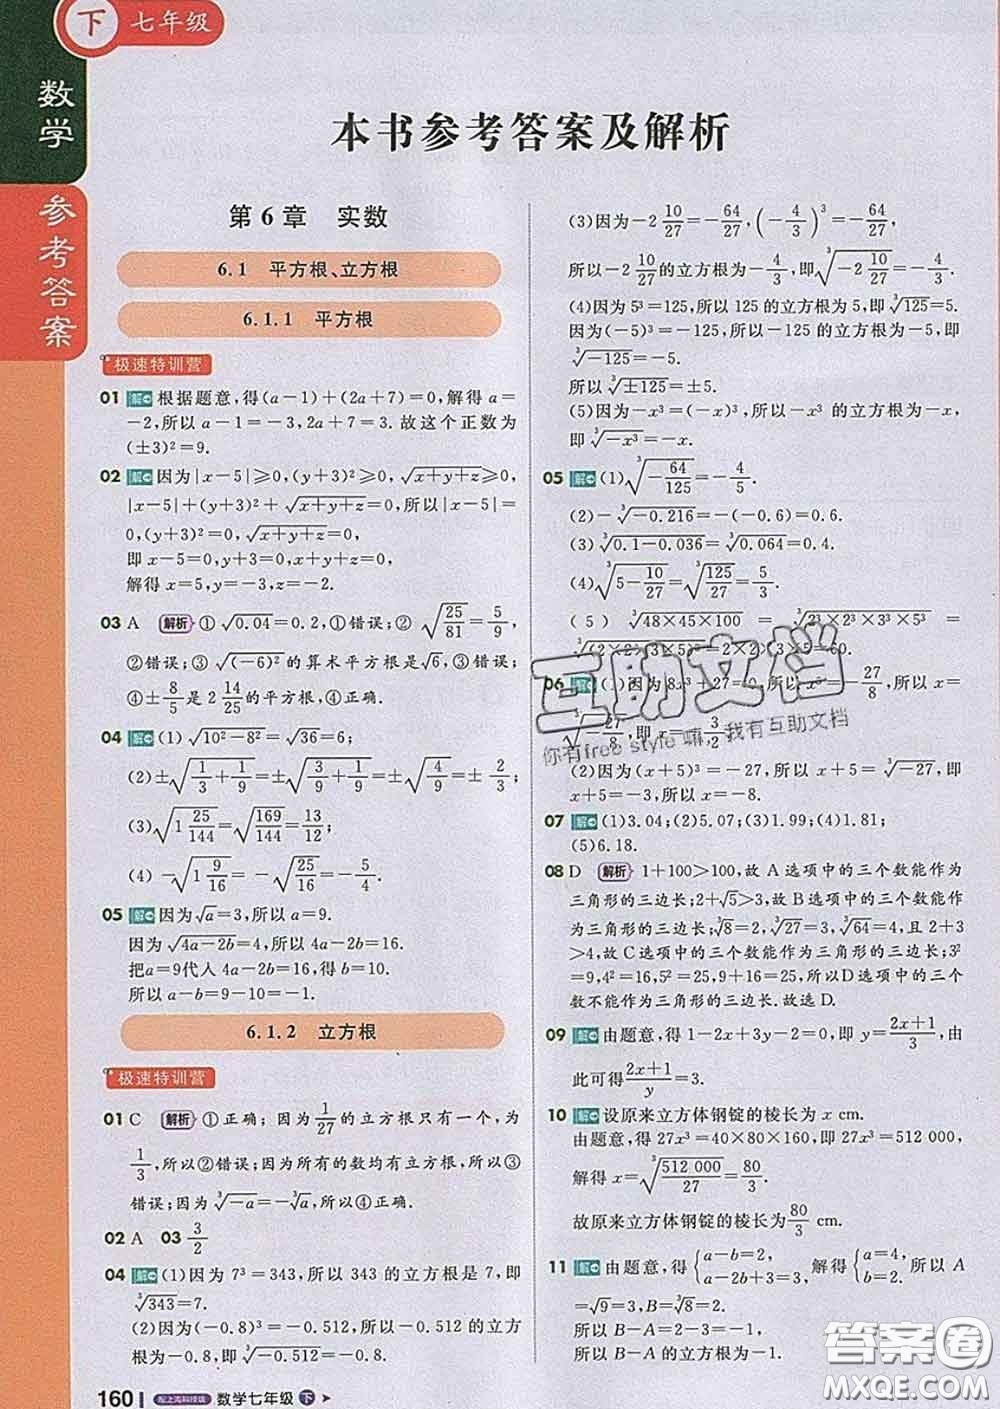 下 七年级
数学
参考答案
本书参考答案及解析
第6章 实数
6.1 平方根、立方根
6.1.1 平方根
极速特训营
01 解 根据题意,得(a-1)+(2a+7)=0,解得 a=
-2,所以 a-1=-3,2a+7=3.故这个正数为
(±3)²=9.
02 解 因为|x-5|≥0,(y+3)²≥0,√(x+y+z)≥0,
|x-5|+(y+3)²+√(x+y+z)=0,所以|x-5|
=0,(y+3)²=0,√(x+y+z)=0,
即 x-5=0,y+3=0,x+y+z=0,
解得 x=5,y=-3,z=-2.
03 A 解析 ①√0.04=0.2,①错误;② √(25/81)=5/9,
②错误;③ √(-6)²的算术平方根是√6,③错误;
④±8/5是2 14/25的平方根,④正确.
04 解 (1) √(10²-8²)=√36=6;
(2)±√(1/3+1/9)=±√(3/9+1/9)=±√(4/9)=±2/3;
(3)√(1 25/144)=√(169/144)=13/12;
(4) -√(1 9/16)=-√(25/16)=-5/4.
05 解 因为√a=3,所以 a=9.
因为√(4a-2b)=4,所以 4a-2b=16.
把a=9代入 4a-2b=16,得 b=10.
所以 a-b=9-10=-1.
6.1.2 立方根
极速特训营
01 C 解析 ①正确;因为1/27的立方根只有一个,为
1/3,所以②错误;因为所有的数均有立方根,所以③
错误;因为∛(-a)=-∛a,所以④正确.
02 A 03 3/2
04 解 (1)因为 7³=343,所以 343 的立方根是 7,即
∛343=7.
(2)因为(-0.8)³=-0.512,所以-0.512的立方
根为-0.8,即∛(-0.512)=-0.8.
160 配上海科技版 数学七年级 下
(3)因为-2 10/27=-64/27,(-4/3)³=-64/27,
所以-2 10/27的立方根为-4/3,即∛(-2 10/27)=-4/3.
(4)因为 5³=125,所以 125 的立方根为 5,即∛125=5.
因为(-5)³=-125,所以-125 的立方根为-5,即
∛(-125)=-5.
所以∛(±125)=±5.
(5)因为-x³=(-x)³,所以-x³ 的立方根为-x,
即∛(-x³)=-x.
05 解 (1)∛(-64/125)=-4/5.
(2)-∛(-0.216)=-(-0.6)=0.6.
(3)∛(0.1-0.036)=∛0.064=0.4.
(4)∛(5-10/27)=∛(125/27)=5/3.
(5) ∛(48×45×100) = ∛(2³×2³×3³×5³)
=∛(2×2×3×5)³=2×2×3×5=60.
06 解 (1)因为8x³+27=0,所以x³=-27/8,所以 x=
∛(-27/8),即x=-3/2.
(2)因为(x+5)³=-27,所以 x+5=∛(-27),即
x+5=-3,所以 x=-8.
07 解 (1)3.04;(2)5.07;(3)1.99;(4)1.81;
(5)6.18.
08 D 解析 1+100>100,故 A 选项中的三个数能作为
三角形的三边长;2+√5>3,故 B 选项中的三个数能作
为三角形的三边长;∛8=2,∛27=3,∛64=4,且 2+3
>4,故 C 选项中的三个数能作为三角形的三边长;3²
=9,4²=16,5²=25,9+16=25,所以D选项中的三个
数不能作为三角形的三边长.故选 D.
09 解 由题意,得 1-2x+3y-2=0,即 y=(2x+1)/3,由
此可得(2x+1)/y=3.
10 解 设原来立方体钢锭的棱长为 x cm.
由题意,得 27x³=40×80×160,即 27x³=512 000,
解得 x=∛(512 000/27)=80/3.
故原来立方体钢锭的棱长为80/3 cm.
11 解 由题意,得{a-b=2, a-2b+3=3, 解得{a=4, b=2. 所以 A
=√9=3,B=∛8=2.
所以 B-A=2-3=-1.
所以 B-A 的立方根为-1.
互助文档
你有free style 嘛,我有互助文档
答案圈
MXQE.COM